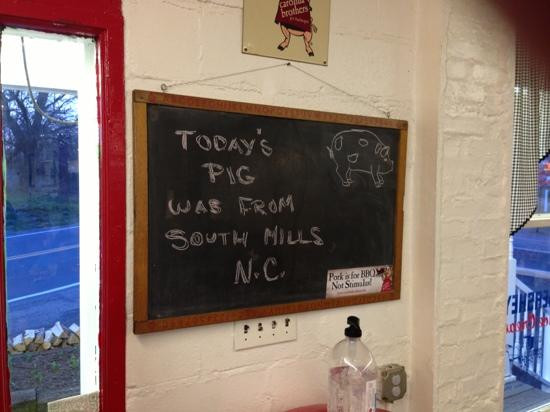 carolina
brothers
TODAY'S
PIG
WAS FROM
SOUTH MILLS
N.C.
Pork is for BBQ
Not Stimulus!